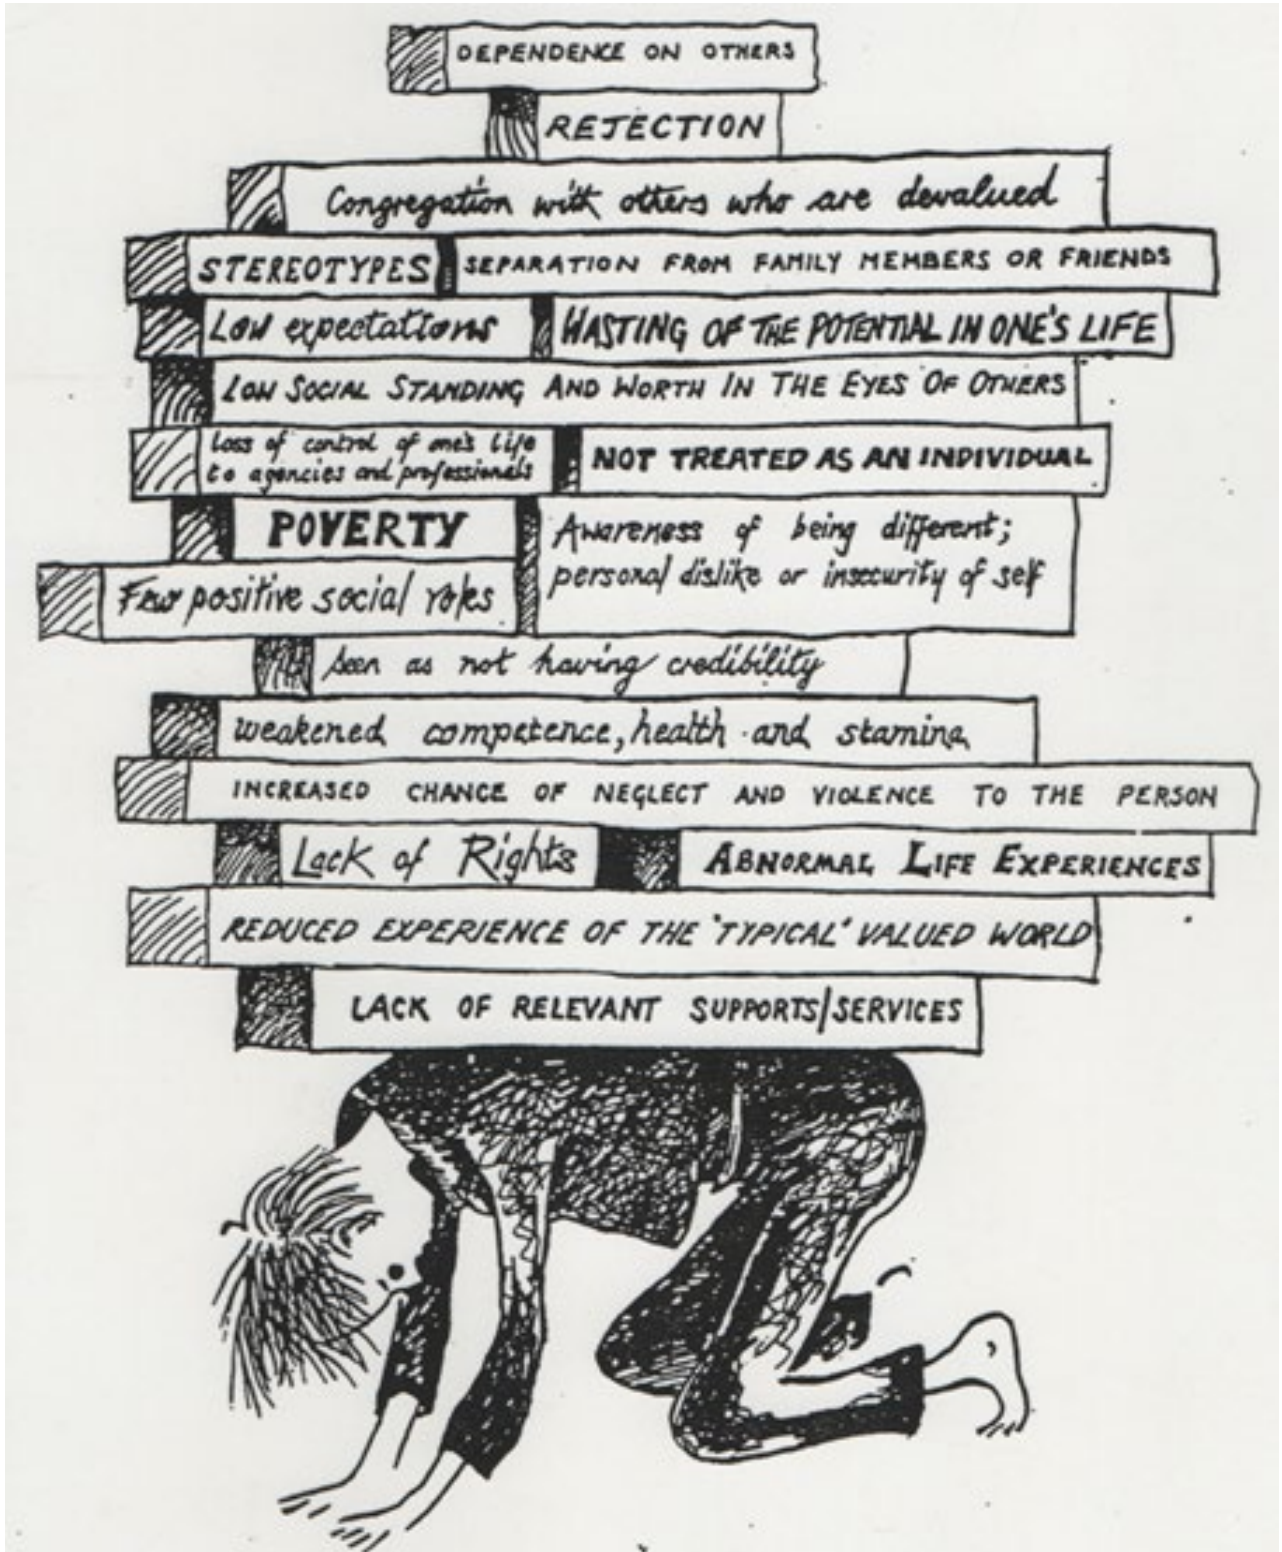 DEPENDENCE ON OTHERS
REJECTION
Congregation with others who are devalued
STEREOTYPES
SEPARATION FROM FAMILY MEMBERS OR FRIENDS
Low expectations
WASTING OF THE POTENTIAL IN ONE'S LIFE
LOW SOCIAL STANDING AND WORTH IN THE EYES OF OTHERS
Loss of control of one's life
to agencies and professionals
NOT TREATED AS AN INDIVIDUAL
POVERTY
Awareness of being different;
personal dislike or insecurity of self
Few positive social roles
seen as not having credibility
weakened competence, health and stamina
INCREASED CHANCE OF NEGLECT AND VIOLENCE TO THE PERSON
Lack of Rights
ABNORMAL LIFE EXPERIENCES
REDUCED EXPERIENCE OF THE "TYPICAL" VALUED WORLD
LACK OF RELEVANT SUPPORTS/SERVICES